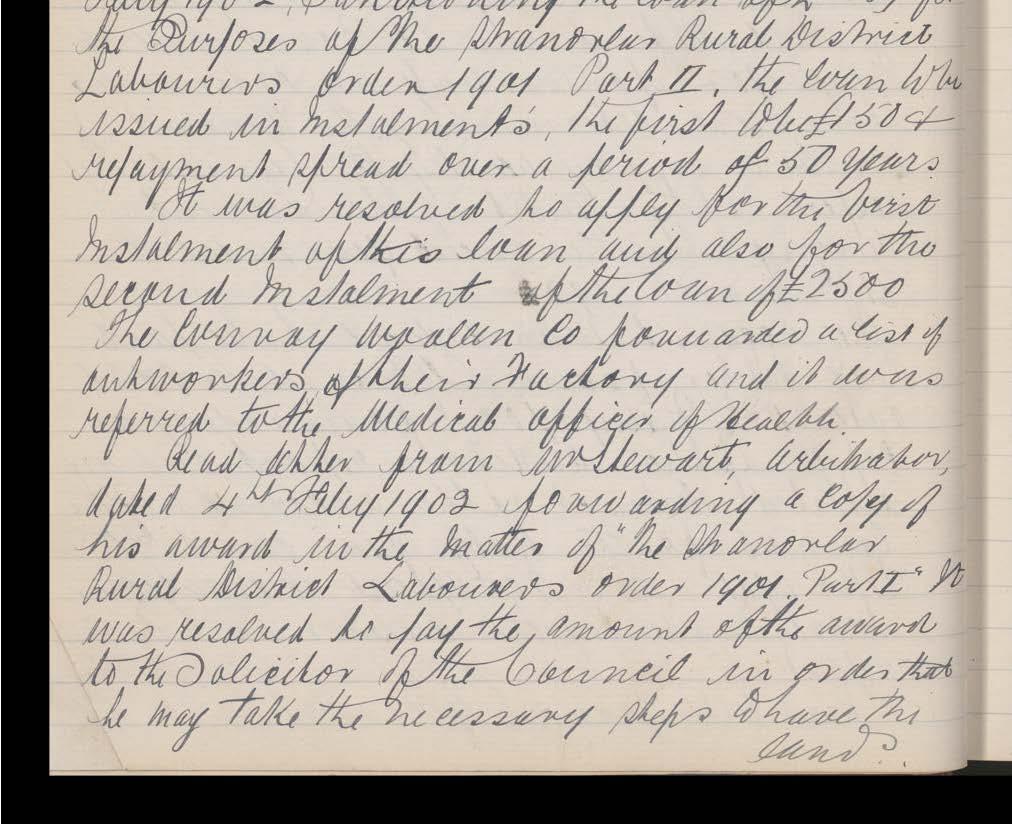 July 1902, sanctioning the loan of £
the Purposes of "The Stranorlar Rural District
Labourers Order 1901 Part II, the loan to be
issued in Instalments, the first to be £150 &
repayment spread over a period of 50 years
It was resolved to apply for the first
Instalment of this loan and also for the
second Instalment of the loan of £2500
The Convoy Woollen Co forwarded a list of
outworkers of their Factory and it was
referred to the Medical officer of Health.
Read letter from Mr Stewart, Arbitrator,
dated 4th July 1902 forwarding a Copy of
his award in the Matter of "The Stranorlar
Rural District Labourers Order 1901. Part I" It
was resolved to pay the amount of the award
to the Solicitor of the Council in order that
he may take the necessary steps to have the
lands.